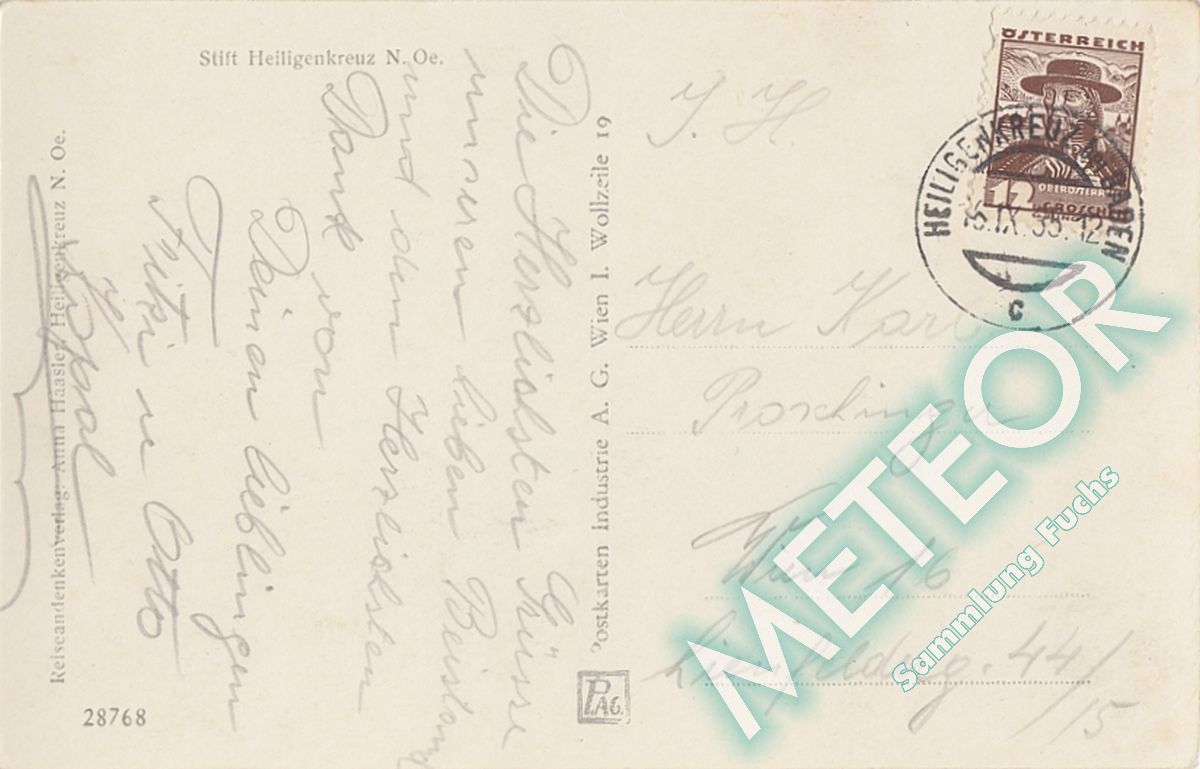 Stift Heiligenkreuz N. Oe.
Die Herzlichsten Grüsse
unseren lieben Beistand
und den Herzlichsten
Dank von
Deinen lieblingen
Fritzi u Otto
Reiseandenkenverlag: Anna Haasler, Heiligenkreuz N. Oe.
28768
Postkarten Industrie A. G. Wien I. Wollzeile 19
PAG.
ÖSTERREICH
12
OBERÖSTERR
GROSCHEN
HEILIGENKREUZ BEI BADEN
IX. 35. 12
c
Herrn Karl
Proschinger
Wien 16
44/
15
METEOR
Sammlung Fuchs